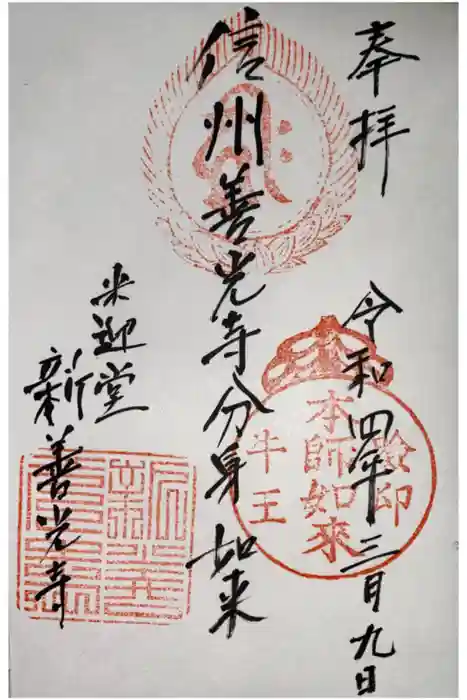 奉拝
令和四年三月九日
信州善光寺分身如来
来迎堂
新善光寺
本師如来
牛王
印